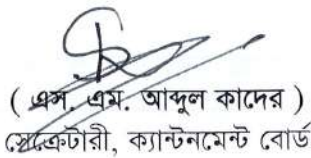 ( এস. এম. আব্দুল কাদের )
সেক্রেটারী, ক্যান্টনমেন্ট বোর্ড